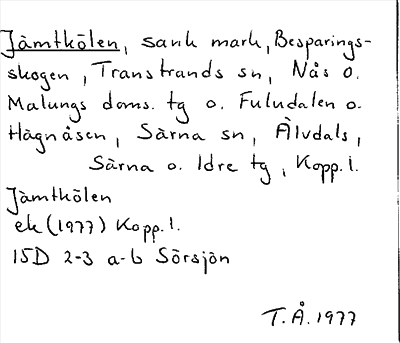 Jämtkölen, sank mark, Besparings-
skogen, Transtrands sn, Nås o.
Malungs doms. tg o. Fuludalen o.
Hägnåsen, Särna sn, Älvdals,
Särna o. Idre tg, Kopp. l.
Jämtkölen
ek (1977) Kopp. l.
15D 2-3 a-b Sörsjön
T.Å. 1977